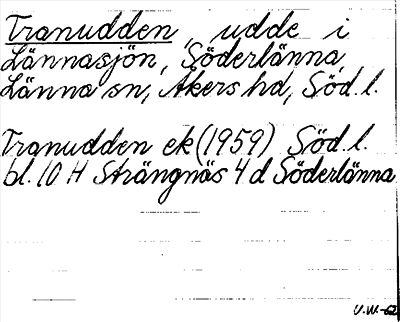 Tranudden, udde i
Lännasjön, Söderlänna,
Länna sn, Åkers hd, Söd.l.
Tranudden ek (1959) Söd.l.
bl. 10 H Strängnäs 4 d Söderlänna
U.W.-62